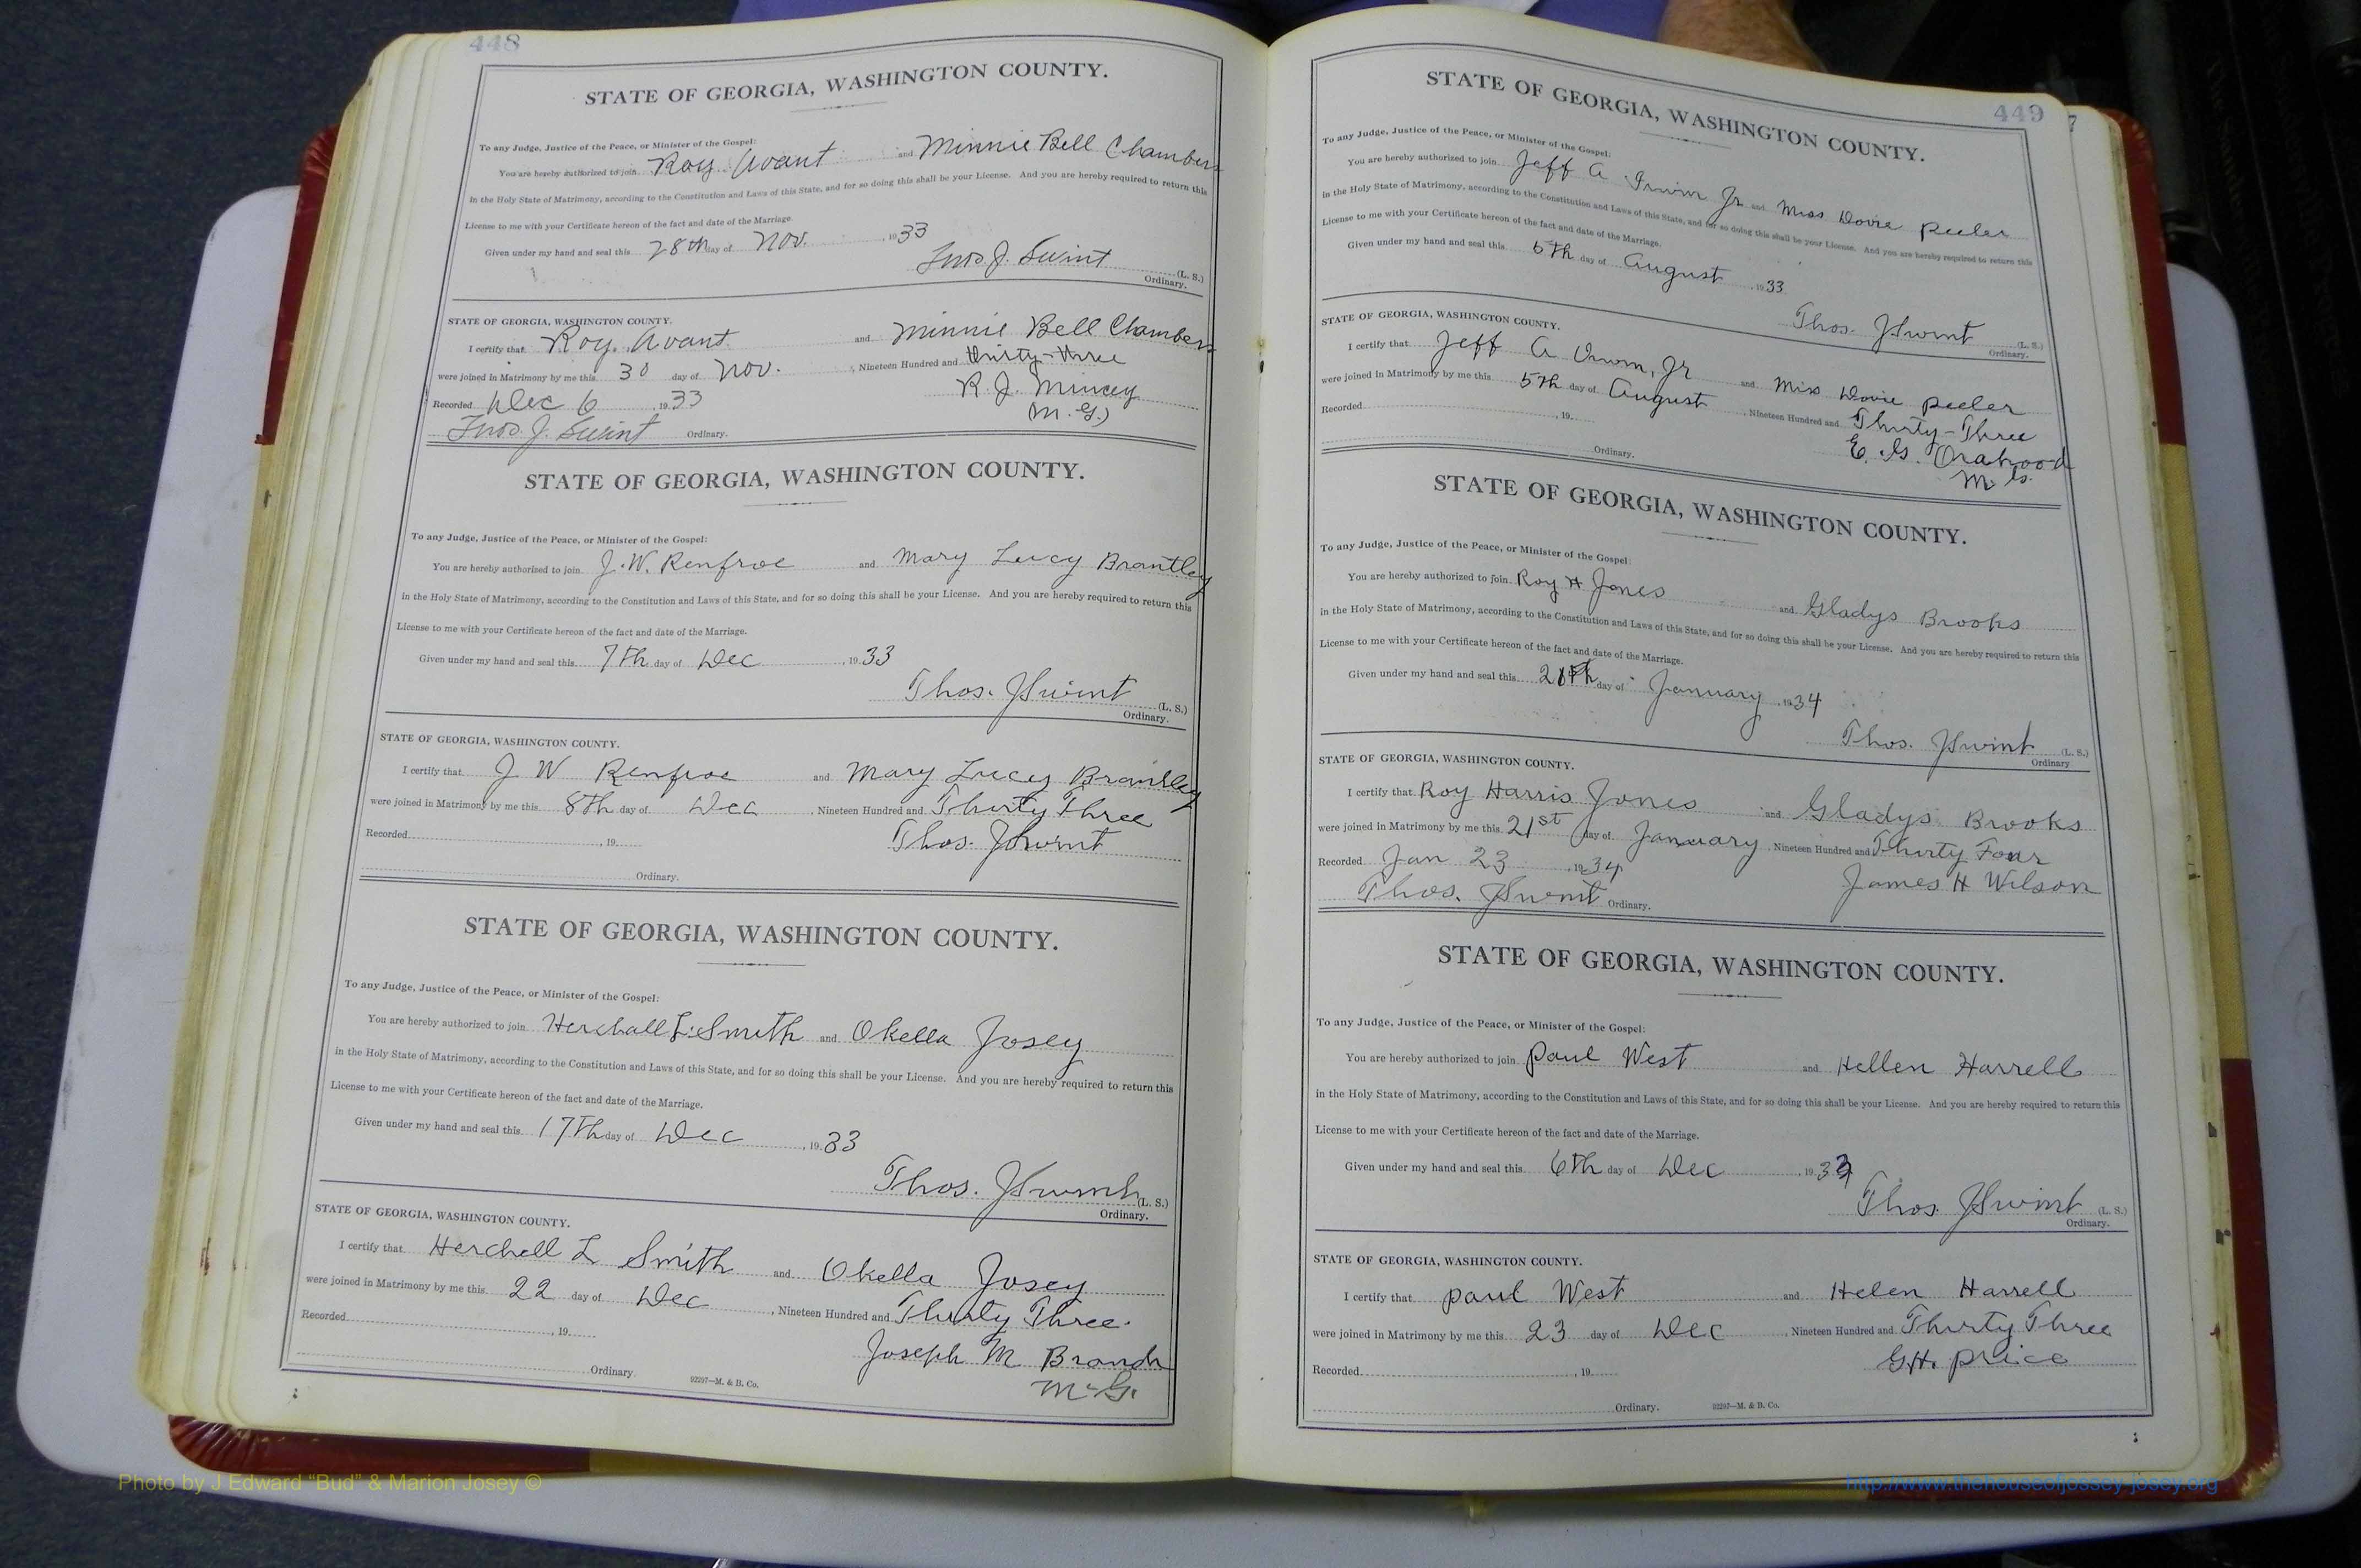 448
STATE OF GEORGIA, WASHINGTON COUNTY.
To any Judge, Justice of the Peace, or Minister of the Gospel:
You are hereby authorized to join Roy Avant and Minnie Bell Chambers
in the Holy State of Matrimony, according to the Constitution and Laws of this State, and for so doing this shall be your License. And you are hereby required to return this
License to me with your Certificate hereon of the fact and date of the Marriage.
Given under my hand and seal this 28th day of Nov. , 1933
Thos. J. Swint (L. S.)
Ordinary.
STATE OF GEORGIA, WASHINGTON COUNTY.
I certify that Roy Avant and Minnie Bell Chambers
were joined in Matrimony by me this 30 day of Nov. , Nineteen Hundred and thirty-three
Recorded Dec 6 1933 R. J. Mincey
Thos. J. Swint Ordinary. (M. G.)
STATE OF GEORGIA, WASHINGTON COUNTY.
To any Judge, Justice of the Peace, or Minister of the Gospel:
You are hereby authorized to join J. W. Renfroe and Mary Lucy Brantley
in the Holy State of Matrimony, according to the Constitution and Laws of this State, and for so doing this shall be your License. And you are hereby required to return this
License to me with your Certificate hereon of the fact and date of the Marriage.
Given under my hand and seal this 7th day of Dec , 1933
Thos. J Swint (L. S.)
Ordinary.
STATE OF GEORGIA, WASHINGTON COUNTY.
I certify that J W Renfroe and Mary Lucy Brantley
were joined in Matrimony by me this 8th day of Dec , Nineteen Hundred and Thirty Three
Recorded , 19 Thos. J Swint
Ordinary.
STATE OF GEORGIA, WASHINGTON COUNTY.
To any Judge, Justice of the Peace, or Minister of the Gospel:
You are hereby authorized to join Herchall L. Smith and Okella Josey
in the Holy State of Matrimony, according to the Constitution and Laws of this State, and for so doing this shall be your License. And you are hereby required to return this
License to me with your Certificate hereon of the fact and date of the Marriage.
Given under my hand and seal this 17th day of Dec , 1933
Thos. J Swint (L. S.)
Ordinary.
STATE OF GEORGIA, WASHINGTON COUNTY.
I certify that Herchell L Smith and Okella Josey
were joined in Matrimony by me this 22 day of Dec , Nineteen Hundred and Thirty Three
Recorded , 19 Joseph M Branch
Ordinary 92297—M. & B. Co. M. G.
449
STATE OF GEORGIA, WASHINGTON COUNTY.
To any Judge, Justice of the Peace, or Minister of the Gospel:
You are hereby authorized to join Jeff A Irwin Jr and Miss Dovie Peeler
in the Holy State of Matrimony, according to the Constitution and Laws of this State, and for so doing this shall be your License. And you are hereby required to return this
License to me with your Certificate hereon of the fact and date of the Marriage.
Given under my hand and seal this 5th day of August , 1933
Thos. J Swint (L. S.)
Ordinary.
STATE OF GEORGIA, WASHINGTON COUNTY.
I certify that Jeff A Irwin, Jr and Miss Dovie Peeler
were joined in Matrimony by me this 5th day of August , Nineteen Hundred and Thirty-Three
Recorded , 19 E. G. Orahood
Ordinary. M. G.
STATE OF GEORGIA, WASHINGTON COUNTY.
To any Judge, Justice of the Peace, or Minister of the Gospel:
You are hereby authorized to join Roy H Jones and Gladys Brooks
in the Holy State of Matrimony, according to the Constitution and Laws of this State, and for so doing this shall be your License. And you are hereby required to return this
License to me with your Certificate hereon of the fact and date of the Marriage.
Given under my hand and seal this day of January , 1934
Thos. J Swint (L. S.)
Ordinary.
STATE OF GEORGIA, WASHINGTON COUNTY.
I certify that Roy Harris Jones and Gladys Brooks
were joined in Matrimony by me this 21st day of January , Nineteen Hundred and Thirty Four
Recorded Jan 23 , 1934 James H Wilson
Thos. J Swint Ordinary.
STATE OF GEORGIA, WASHINGTON COUNTY.
To any Judge, Justice of the Peace, or Minister of the Gospel:
You are hereby authorized to join Paul West and Hellen Harrell
in the Holy State of Matrimony, according to the Constitution and Laws of this State, and for so doing this shall be your License. And you are hereby required to return this
License to me with your Certificate hereon of the fact and date of the Marriage.
Given under my hand and seal this 6th day of Dec , 1933
Thos. J Swint (L. S.)
Ordinary.
STATE OF GEORGIA, WASHINGTON COUNTY.
I certify that Paul West and Helen Harrell
were joined in Matrimony by me this 23 day of Dec , Nineteen Hundred and Thirty Three
Recorded , 19 G. H. Price
Ordinary. 92297—M. & B. Co.
Photo by J Edward “Bud” & Marion Josey ©
http://www.thehouseofjossey-josey.org